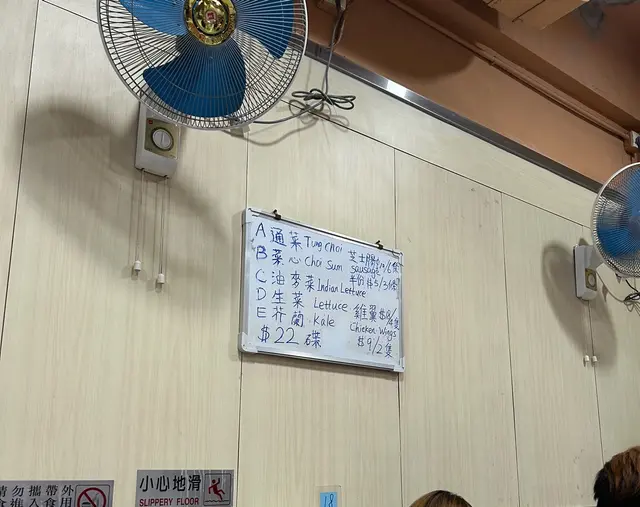 A 通菜 Tung Choi
B 菜心 Choi Sum
C 油麥菜 Indian Lettuce
D 生菜 Lettuce
E 芥蘭 Kale
$22 碟
芝士腸
sausage
半份 $5/3條
雞翼
Chicken Wings
$9/2隻
請勿攜帶外
食進入食用
小心地滑
SLIPPERY FLOOR
18